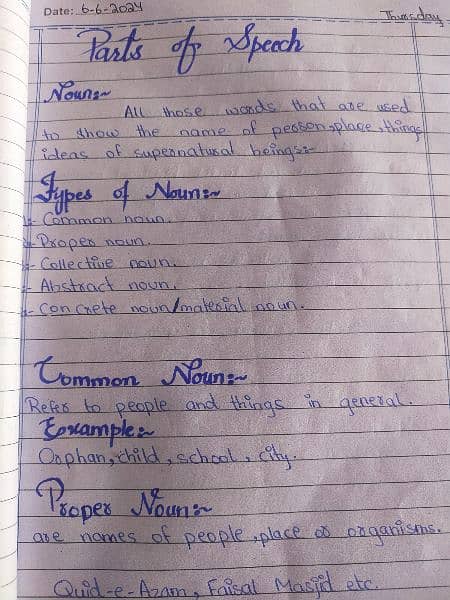 Date: 6-6-2024
Thursday
Parts of Speech
Noun:~
All those words that are used
to show the name of person, place, things
ideas of supernatural beings:-
Types of Noun:~
- Common noun.
- Proper noun.
- Collective noun.
- Abstract noun.
- Concrete noun/material noun.
Common Noun:~
Refer to people and things in general.
Example:~
Orphan, child, school, city.
Proper Noun:~
are names of people, place or organisms.
Quid-e-Azam, Faisal Masjid etc.